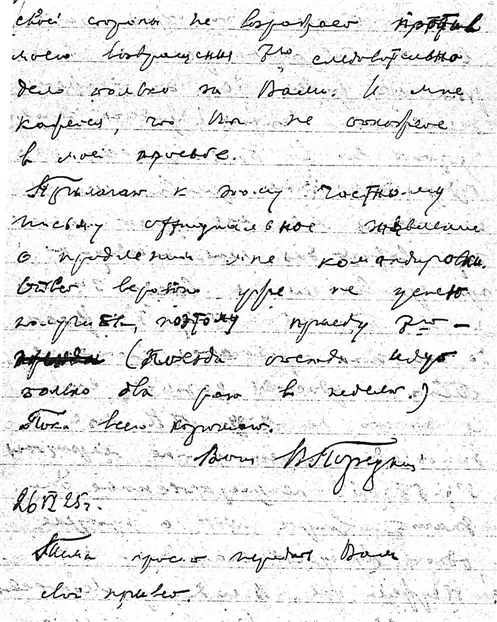 своей стороны не возражает против
моего возвращения 7го следовательно
дело только за Вами. И мне
кажется, что Вы не откажете
в моей просьбе.
Прилагаю к этому частному
письму официальное заявление
о продлении мне командировки.
Ответ вероятно уже не успею
получить, поэтому приеду 7го –
(Поезда отсюда идут
только два раза в неделю.)
Пока всего хорошего.
Ваш В Порецкий
26 VI 25 г.
просит передать Вам
свой привет.